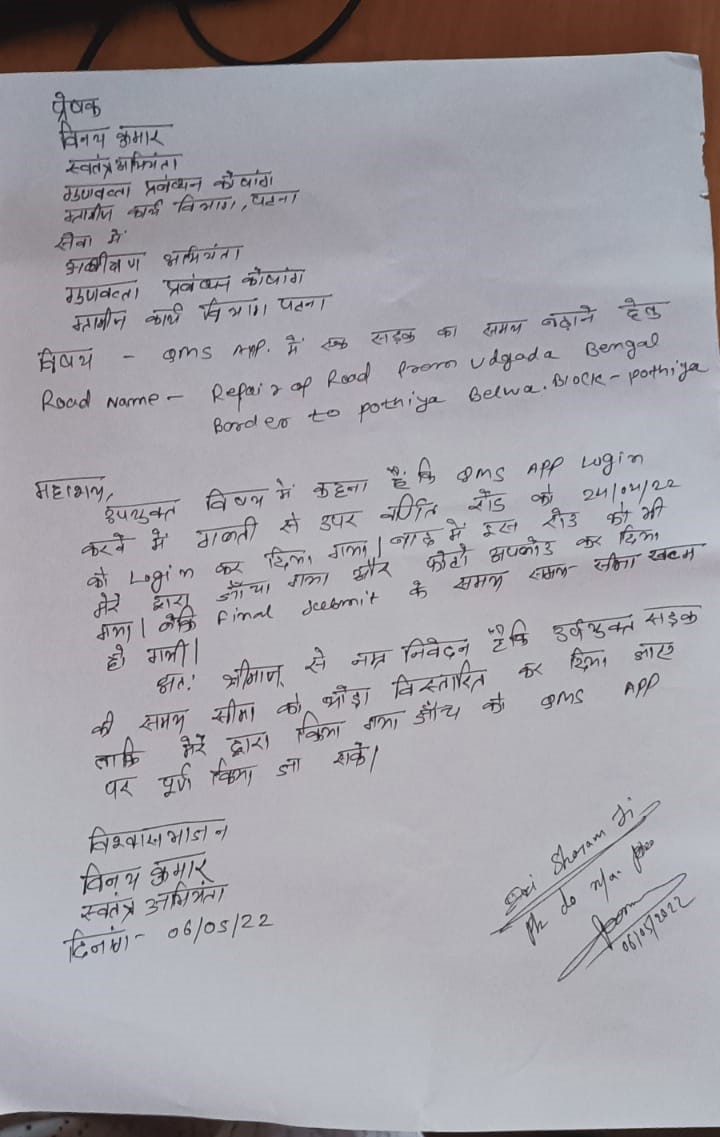 प्रेषक
विनय कुमार
स्वतंत्र अभियंता
गुणवत्ता प्रबंधन कोषांग
ग्रामीण कार्य विभाग, पटना
सेवा में
अधीक्षण अभियंता
गुणवत्ता प्रबंधन कोषांग
ग्रामीण कार्य विभाग पटना
विषय - QMS APP. में एक सड़क का समय बढ़ाने हेतु
Road Name - Repair of Road from Udgada Bengal
Border to pothiya Belwa. Block - pothiya
महाशय,
उपयुक्त विषय में कहना है कि QMS APP Login
करने में गलती से उपर वर्णित रोड को 24/04/22
को Login कर दिया गया। बाद में इस रोड को भी
मेरे द्वारा जाँचा गया और फोटो अपलोड कर दिया
गया। लेकि Final submit के समय समय-सीमा खत्म
हो गयी।
अतः श्रीमान् से नम्र निवेदन है कि उर्पयुक्त सड़क
की समय सीमा को थोड़ा विस्तारित कर दिया जाए
ताकि मेरे द्वारा किया गया जाँच को QMS APP
पर पूर्ण किया जा सके।
विश्वासभाजन
विनय कुमार
स्वतंत्र अभियंता
दिनांक - 06/05/22
Sri Shoram Ji
Pk do n/a
06/05/2022